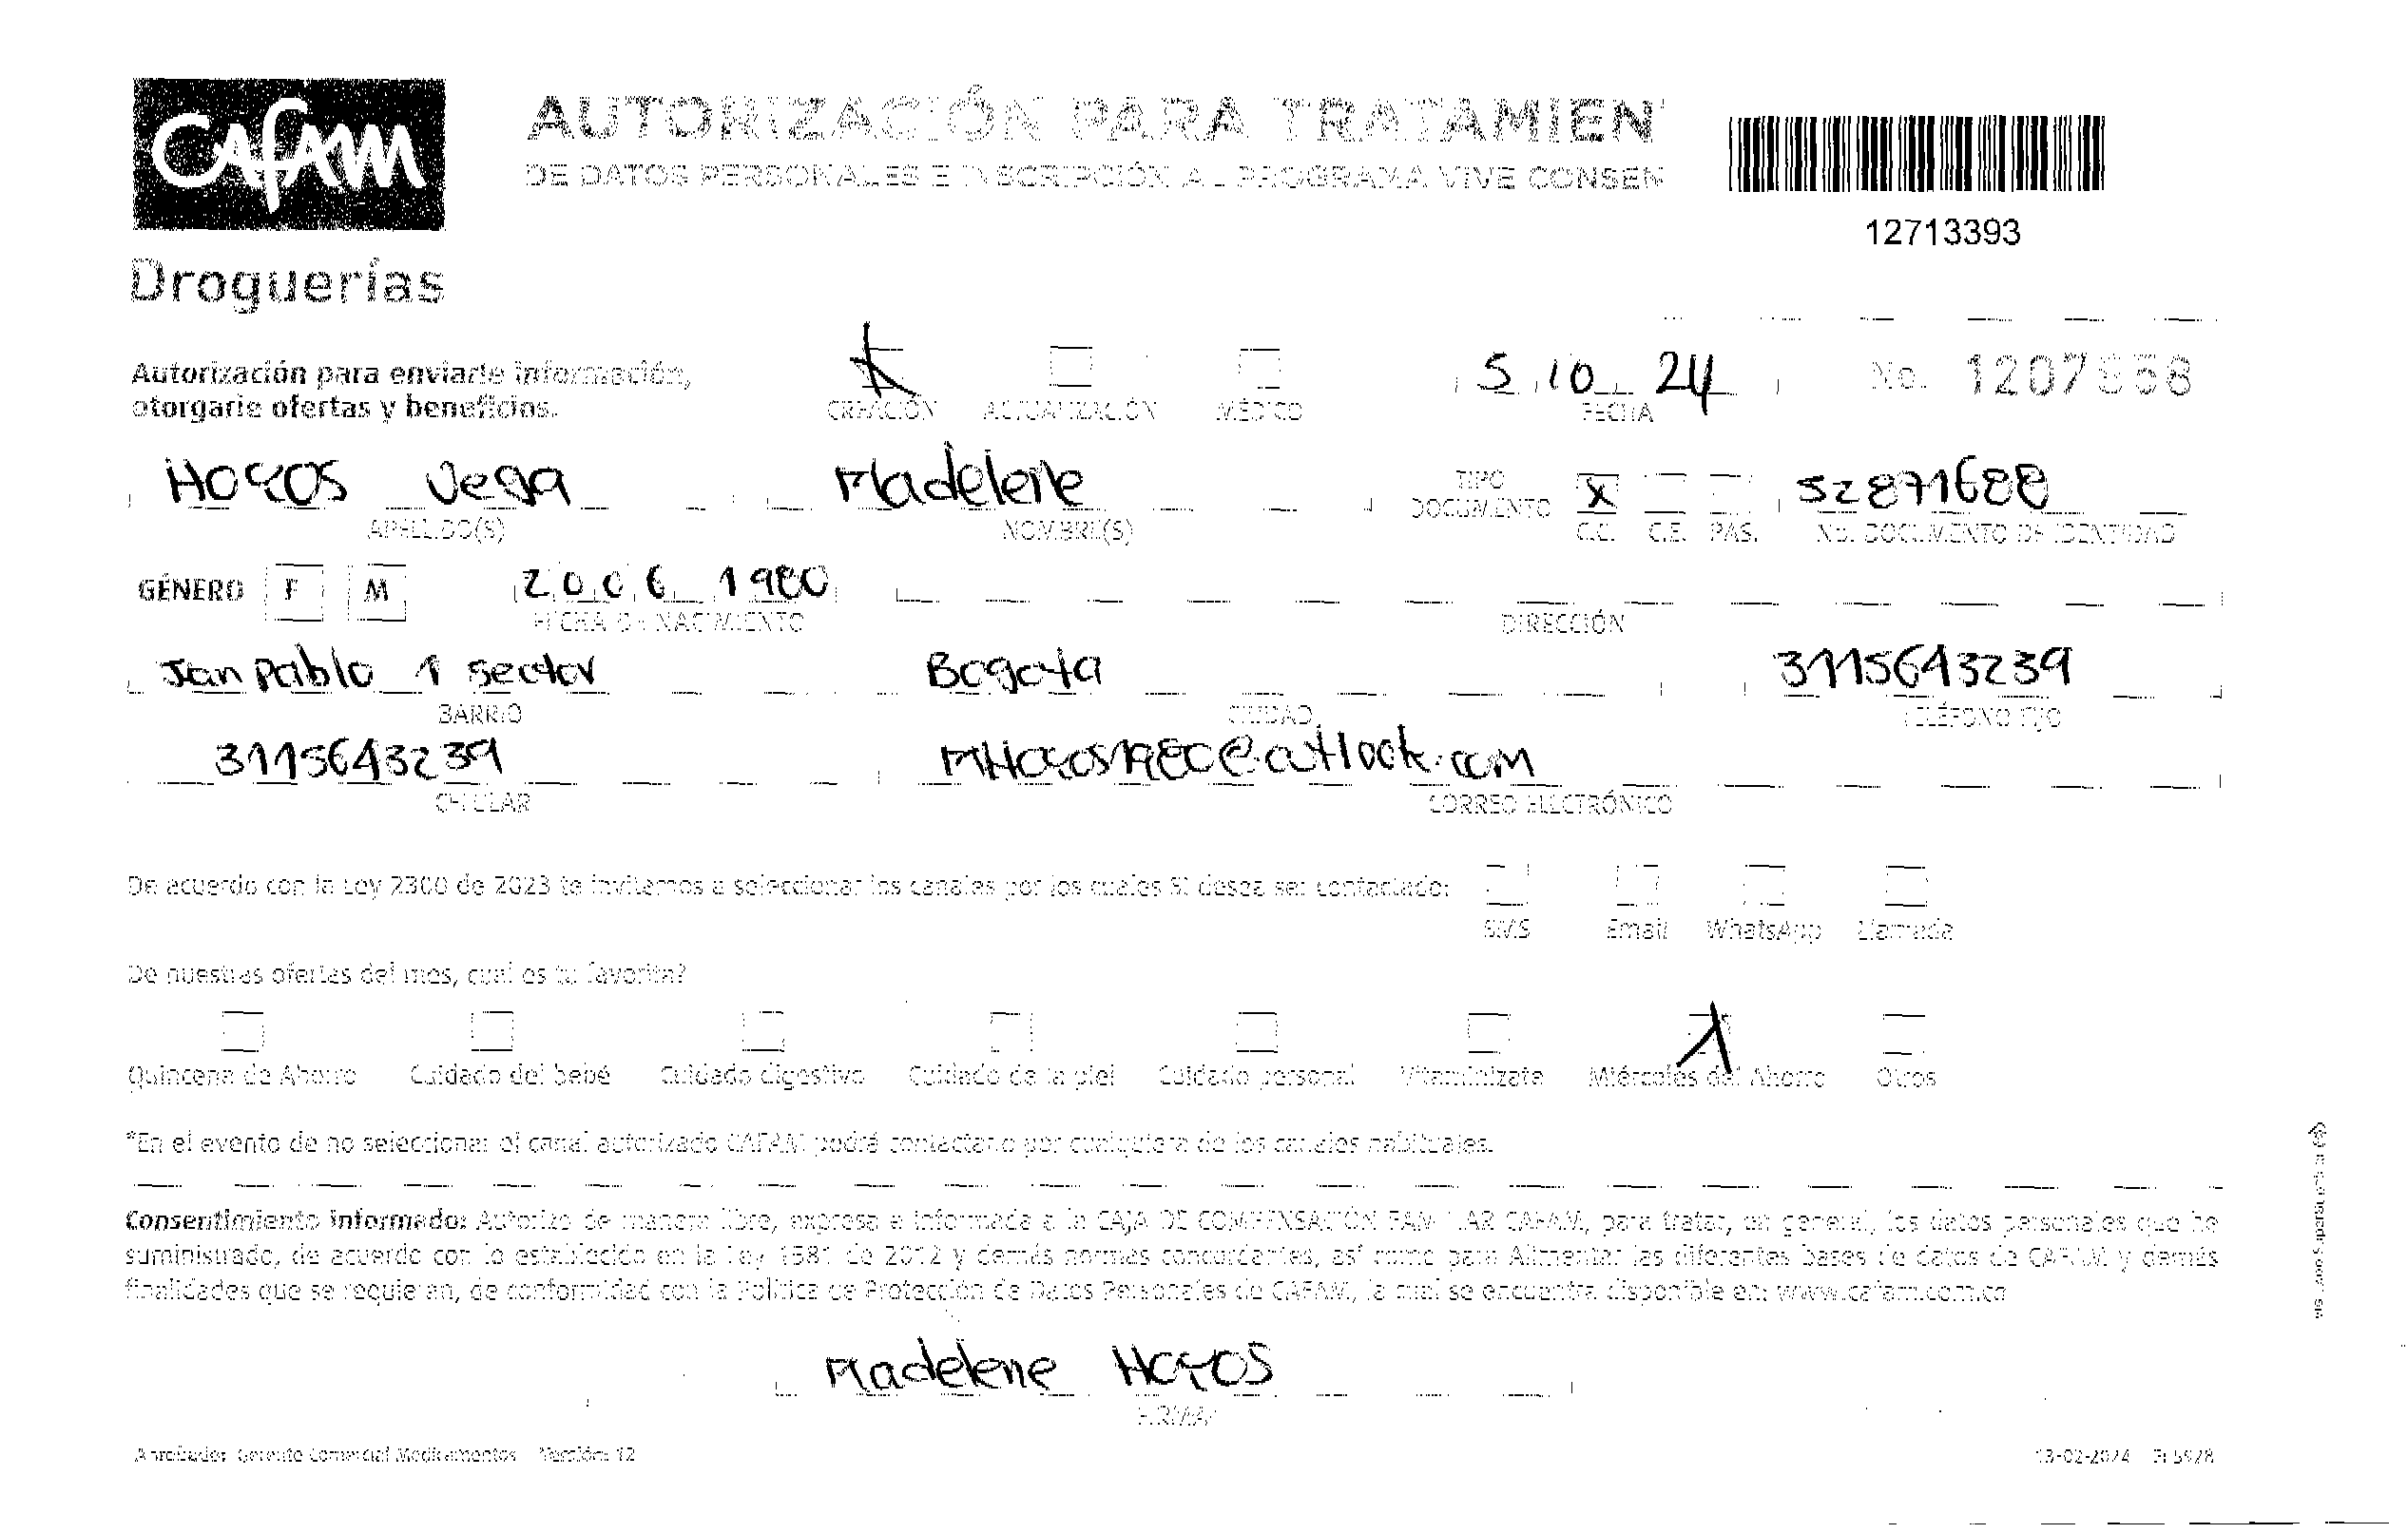 Cafam
AUTORIZACIÓN PARA TRATAMIEN
DE DATOS PERSONALES E INSCRIPCIÓN AL PROGRAMA VIVE CONSEN
12713393
Droguerías
Autorización para enviarle información,
otorgarle ofertas y beneficios.
CREACIÓN ACTUALIZACIÓN MÉDICO
5 10 24
FECHA
No. 1207858
HOYOS Vega Madelene
TIPO DOCUMENTO X 52871688
APELLIDO(S) NOMBRE(S) C.C. C.E. PAS. No. DOCUMENTO DE IDENTIDAD
GÉNERO F M 20 06 1980
FECHA DE NACIMIENTO DIRECCIÓN
Jan Pablo 1 sector Bogota 3115643239
BARRIO CIUDAD TELÉFONO FIJO
3115643239 MHoyos1980@outlook.com
CELULAR CORREO ELECTRÓNICO
De acuerdo con la Ley 2300 de 2023 te invitamos a seleccionar los canales por los cuales SI desea ser contactado:
SMS Email WhatsApp Llamada
De nuestras ofertas del mes, cual es tu favorita?
Quincena de Ahorro Cuidado del bebé Cuidado digestivo Cuidado de la piel Cuidado personal Vitaminízate Miércoles del Ahorro Otros
*En el evento de no seleccionar el canal autorizado CAFAM podrá contactarlo por cualquiera de los canales habituales.
Consentimiento informado: Autorizo de manera libre, expresa e informada a la CAJA DE COMPENSACIÓN FAMILIAR CAFAM, para tratar, en general, los datos personales que he
suministrado, de acuerdo con lo establecido en la Ley 1581 de 2012 y demás normas concordantes, así como para Alimentar las diferentes bases de datos de CAFAM y demás
finalidades que se requieran, de conformidad con la Política de Protección de Datos Personales de CAFAM, la cual se encuentra disponible en: www.cafam.com.co
Madelene HOYOS
FIRMA
Aprobado: Gerente Comercial Medicamentos Versión: 12
13-02-2024